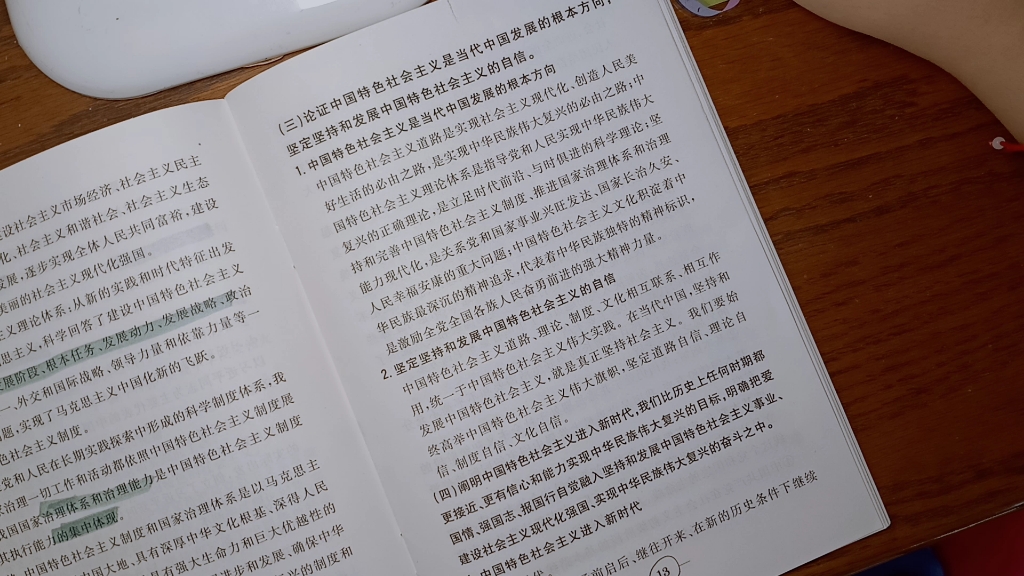 设社会主义市场经济、社会主义民主
化、社会主义和谐社会、社会主义生态
发展,逐步实现全体人民共同富裕,建设
美丽的社会主义现代化强国。
主义理论体系,从新的实践和时代特征出发
思主义,科学回答了建设中国特色社会主义
发展阶段、根本任务、发展动力、发展战略、政治
一、外交和国际战略、领导力量和依靠力量等一
题,实现了马克思主义中国化新的飞跃。
色社会主义制度。
党和人民在长期实践探索中形成的科学制度体系,我
家治理一切工作和活动都依照中国特色社会主义制度展
我国国家治理体系和治理能力是中国特色社会主义制度
其执行能力的集中体现。
中国特色社会主义制度和国家治理体系是以马克思主
中国大地、具有深厚中华文化根基、深得人民
具有强大生命力和巨大优越性的
进步和发展、确保中华
兴的制度和
(三)论证中国特色社会主义是当代中国发展的根本方向,
坚定坚持和发展中国特色社会主义的自信。
1. 中国特色社会主义是当代中国发展的根本方向
中国特色社会主义道路是实现社会主义现代化、创造人民美
好生活的必由之路,是实现中华民族伟大复兴的必由之路,中
国特色社会主义理论体系是指导党和人民实现中华民族伟大
复兴的正确理论,是立足时代前沿、与时俱进的科学理论,坚
持和完善中国特色社会主义制度、推进国家治理体系和治理
能力现代化,是关系党和国家事业兴旺发达、国家长治久安、
人民幸福安康的重大问题,中国特色社会主义文化积淀着中
华民族最深沉的精神追求,代表着中华民族独特的精神标识,
是激励全党全国各族人民奋勇前进的强大精神力量。
2. 坚定坚持和发展中国特色社会主义的自信
中国特色社会主义道路、理论、制度、文化相互联系、相互作
用,统一于中国特色社会主义伟大实践。在当代中国,坚持和
发展中国特色社会主义,就是真正坚持社会主义。我们要始
终高举中国特色社会主义伟大旗帜,坚定道路自信、理论自
信、制度自信、文化自信。
(四)阐明中国特色社会主义进入新时代,我们比历史上任何时期都
更接近、更有信心和能力实现中华民族伟大复兴的目标,明确把爱
国情、强国志、报国行自觉融入坚持和发展中国特色社会主义事业、
建设社会主义现代化强国、实现中华民族伟大复兴的奋斗之中。
中国特色社会主义进入新时代
前启后、继往开来、在新的历史条件下继续
13